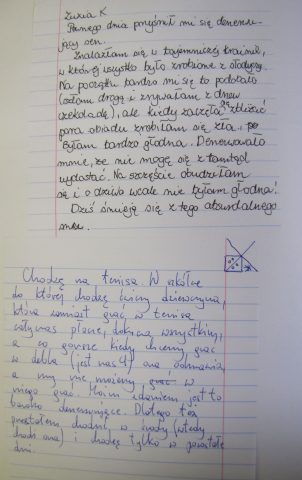 Zuzia K
Pewnego dnia przyśnił mi się denerwu-
jący sen.
Znalazłam się w tajemniczej krainie,
w której wszystko było zrobione z słodyczy.
Na początku bardzo mi się to podobało
(szłam drogą i zrywałam z drzew
czekoladę), ale kiedy zaczęła się zbliżać
pora obiadu zrobiłam się zła, bo
byłam bardzo głodna. Denerwowało
mnie, że nie mogę się z tamtąd
wydostać. Na szczęście obudziłam
się i o dziwo wcale nie byłam głodna!
Dziś śmieję się z tego absurdalnego
snu.
Chodzę na tenisa. W szkółce
do której chodzę ćwiczy dziewczyna,
która zamiast grać w tenisa
cały czas płacze, dokucza wszystkim,
a co gorsze kiedy chcemy grać
w debla (jest nas 4) ona odmawia
a my nie możemy grać w
niego grać. Moim zdaniem jest to
bardzo denerwujące. Dlatego też
przestałem chodzić w środy (wtedy
chodzi ona) i chodzę tylko w pozostałe
dni.